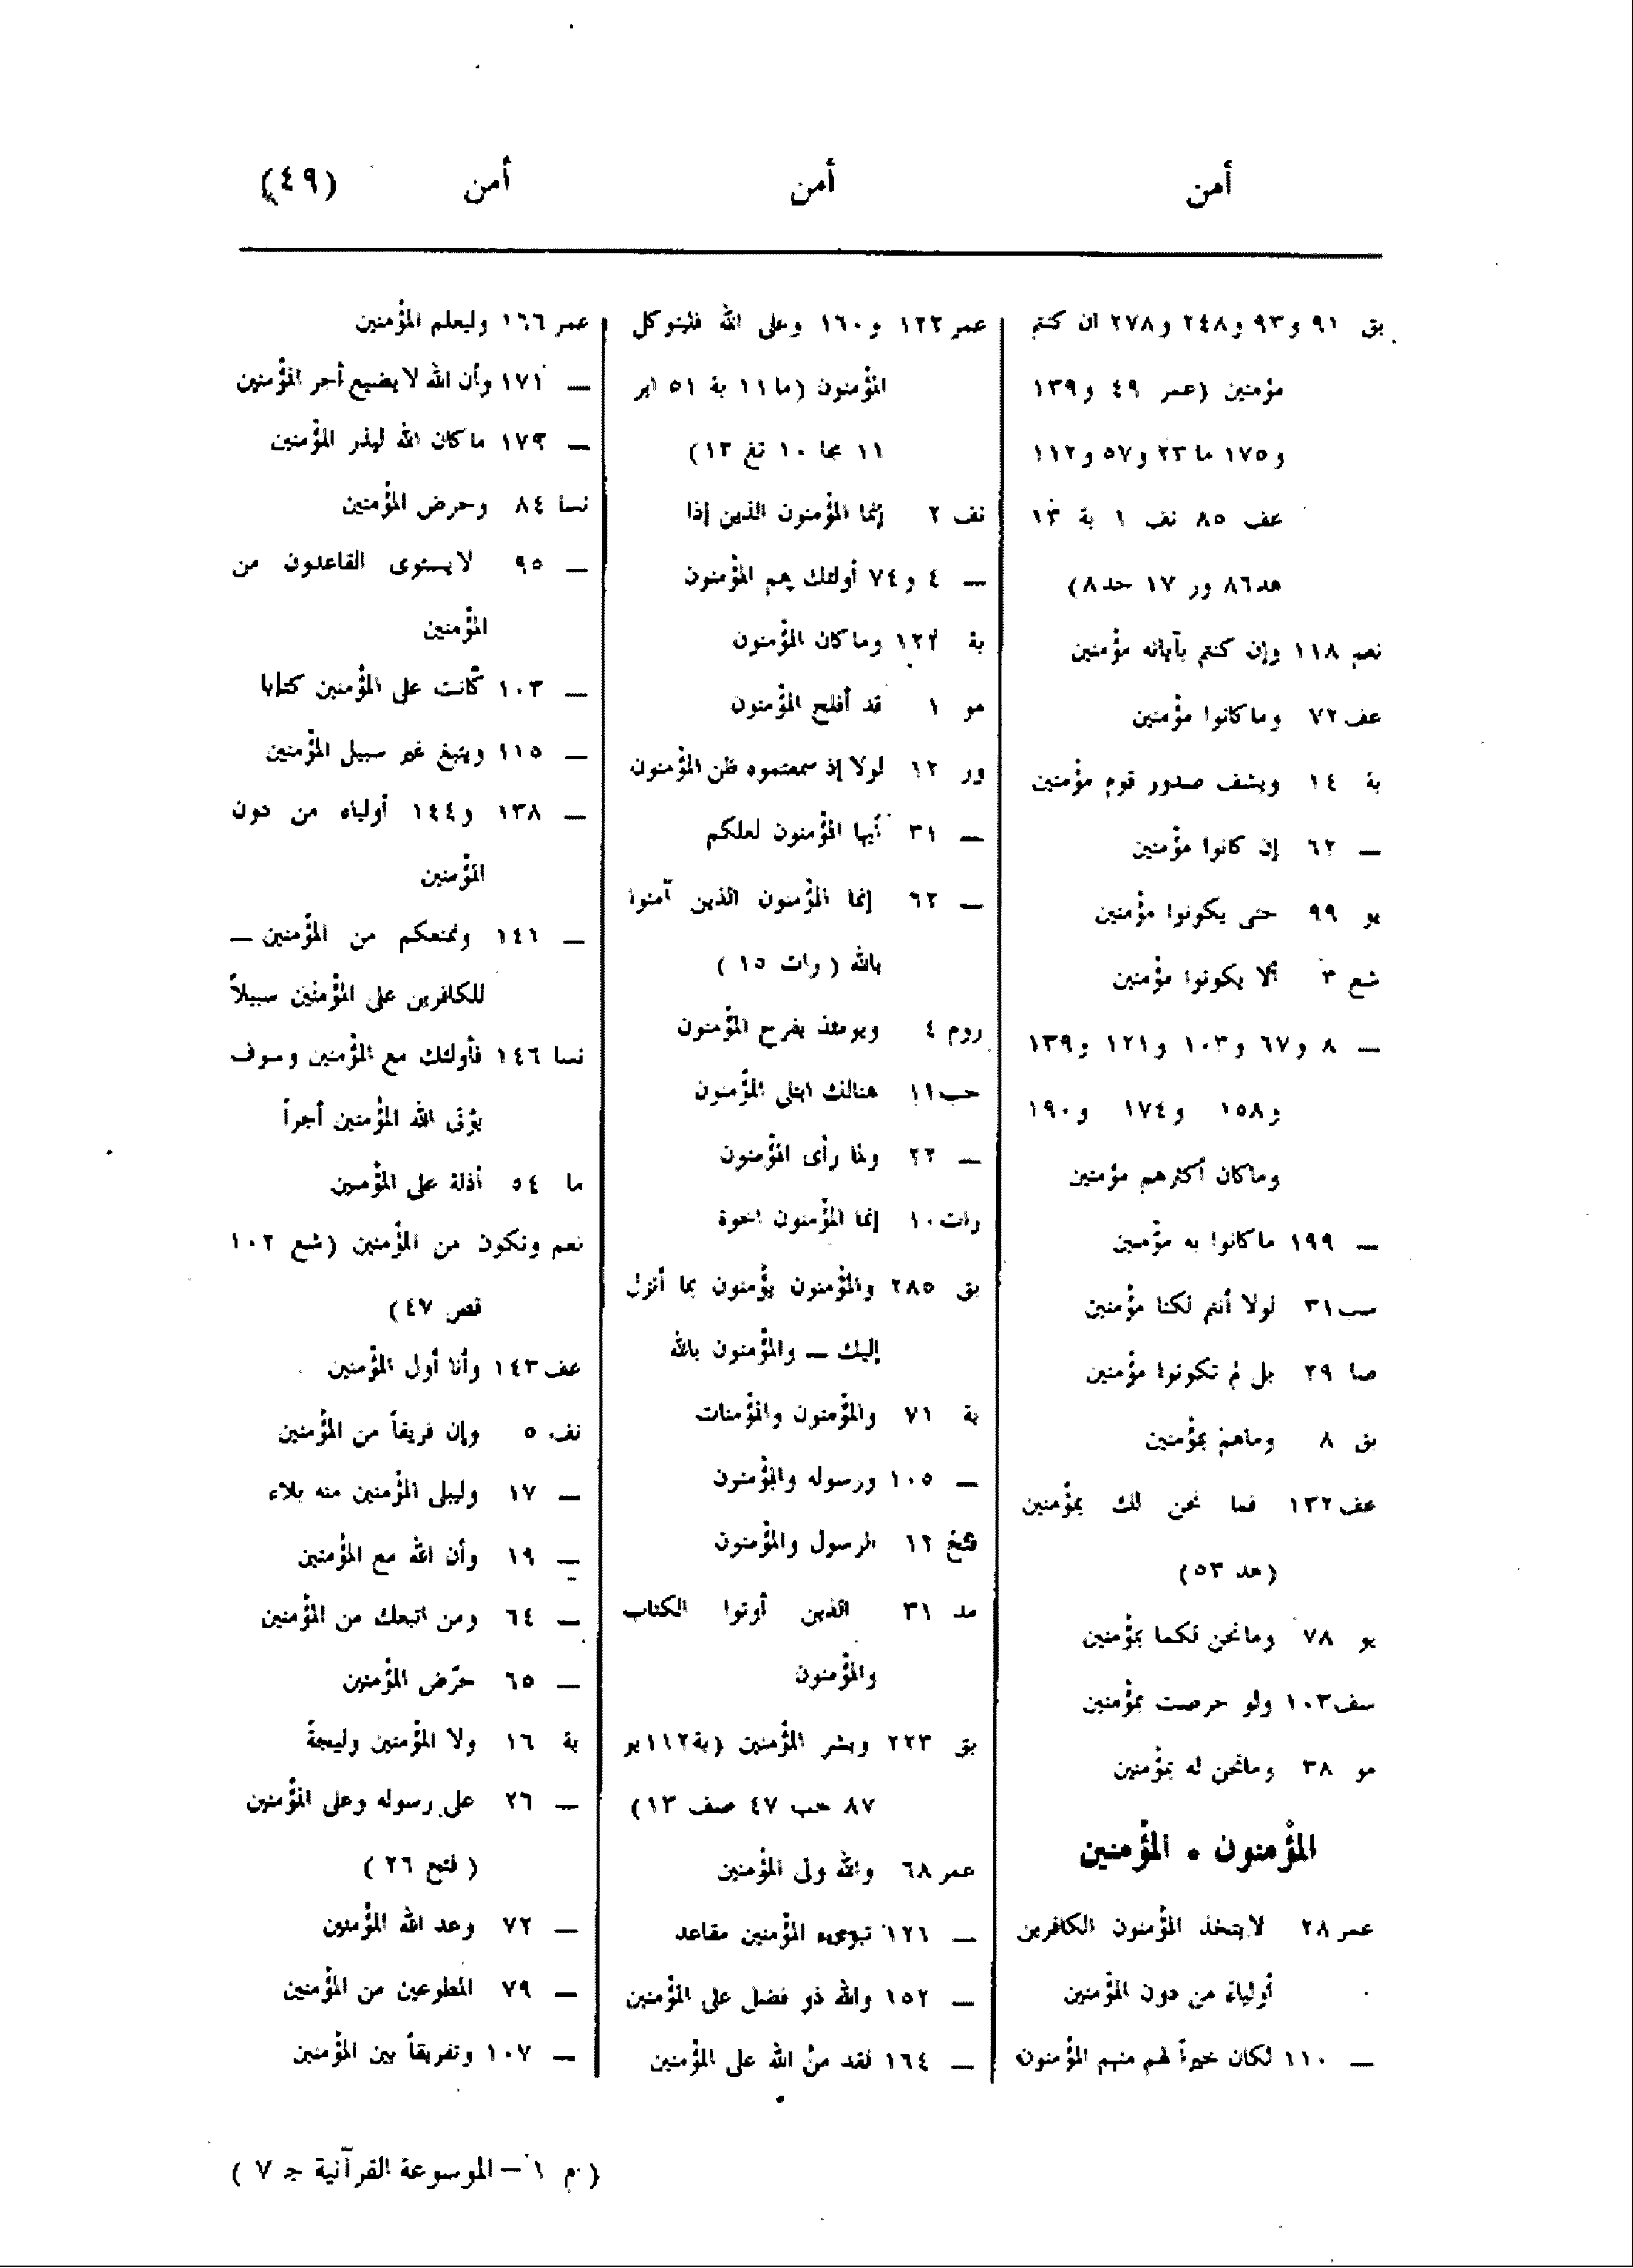 أمن
أمن
أمن
(٤٩)
بق ٩١ و٩٣ و٢٤٨ و٢٧٨ ان كنتم
مؤمنين (عمر ٤٩ و١٣٩
و١٧٥ ما ٢٣ و٥٧ و١١٢
عف ٨٥ نف ١ بة ١٣
هد ٨٦ ور ١٧ حد ٨)
نعم ١١٨ وإن كنتم بآياته مؤمنين
عف ٧٢ وما كانوا مؤمنين
بة ١٤ ويشف صدور قوم مؤمنين
— ٦٢ إن كانوا مؤمنين
يو ٩٩ حتى يكونوا مؤمنين
شع ٣ ألا يكونوا مؤمنين
— ٨ و٦٧ و١٠٣ و١٢١ و١٣٩
و١٥٨ و١٧٤ و١٩٠
وما كان أكثرهم مؤمنين
— ١٩٩ ما كانوا به مؤمنين
سب ٣١ لولا أنتم لكنا مؤمنين
صا ٢٩ بل لم تكونوا مؤمنين
بق ٨ وماهم بمؤمنين
عف ١٣٢ فما نحن لك بمؤمنين
(هد ٥٣)
يو ٧٨ وما نحن لكما بمؤمنين
سف ١٠٣ ولو حرصت بمؤمنين
مو ٣٨ وما نحن له بمؤمنين
المؤمنون • المؤمنين
عمر ٢٨ لا يتخذ المؤمنون الكافرين
أولياء من دون المؤمنين
— ١١٠ لكان خيراً لهم منهم المؤمنون
عمر ١٢٢ و١٦٠ وعلى الله فليتوكل
المؤمنون (ما ١١ بة ٥١ ابر
١١ مجا ١٠ تغ ١٣)
نف ٢ إنما المؤمنون الذين إذا
— ٤ و٧٤ أولئك هم المؤمنون
بة ١٢٢ وما كان المؤمنون
مو ١ قد أفلح المؤمنون
ور ١٢ لولا إذ سمعتموه ظن المؤمنون
— ٣١ أيها المؤمنون لعلكم
— ٦٢ إنما المؤمنون الذين آمنوا
بالله (رات ١٥)
روم ٤ ويومئذ يفرح المؤمنون
حب ١١ هنالك ابتلى المؤمنون
— ٢٢ ولما رأى المؤمنون
رات ١٠ إنما المؤمنون اخوة
بق ٢٨٥ والمؤمنون يؤمنون بما أنزل
إليك — والمؤمنون بالله
بة ٧١ والمؤمنون والمؤمنات
— ١٠٥ ورسوله والمؤمنون
فتح ١٢ الرسول والمؤمنون
مد ٣١ الذين أوتوا الكتاب
والمؤمنون
بق ٢٢٣ وبشر المؤمنين (بة ١١٢ يو
٨٧ حب ٤٧ صف ١٣)
عمر ٦٨ والله ولى المؤمنين
— ١٢١ تبوىء المؤمنين مقاعد
— ١٥٢ والله ذو فضل على المؤمنين
— ١٦٤ لقد منّ الله على المؤمنين
عمر ١٦٦ وليعلم المؤمنين
— ١٧١ وأن الله لا يضيع أجر المؤمنين
— ١٧٩ ما كان الله ليذر المؤمنين
نسا ٨٤ وحرض المؤمنين
— ٩٥ لا يستوى القاعدون من
المؤمنين
— ١٠٣ كانت على المؤمنين كتابا
— ١١٥ ويتبغ غير سبيل المؤمنين
— ١٣٨ و١٤٤ أولياء من دون
المؤمنين
— ١٤١ ونمنعكم من المؤمنين —
للكافرين على المؤمنين سبيلاً
نسا ١٤٦ فأولئك مع المؤمنين وسوف
يؤتى الله المؤمنين أجراً
ما ٥٤ أذلة على المؤمنين
نعم ونكون من المؤمنين (شع ١٠٢
قص ٤٧)
عف ١٤٣ وأنا أول المؤمنين
نف ٥ وإن فريقاً من المؤمنين
— ١٧ وليبلى المؤمنين منه بلاء
— ١٩ وأن الله مع المؤمنين
— ٦٤ ومن اتبعك من المؤمنين
— ٦٥ حرّض المؤمنين
بة ١٦ ولا المؤمنين وليجةً
— ٢٦ على رسوله وعلى المؤمنين
(فتح ٢٦)
— ٧٢ وعد الله المؤمنين
— ٧٩ المطوعين من المؤمنين
— ١٠٧ وتفريقاً بين المؤمنين
(م ٦ – الموسوعة القرآنية جـ ٧)